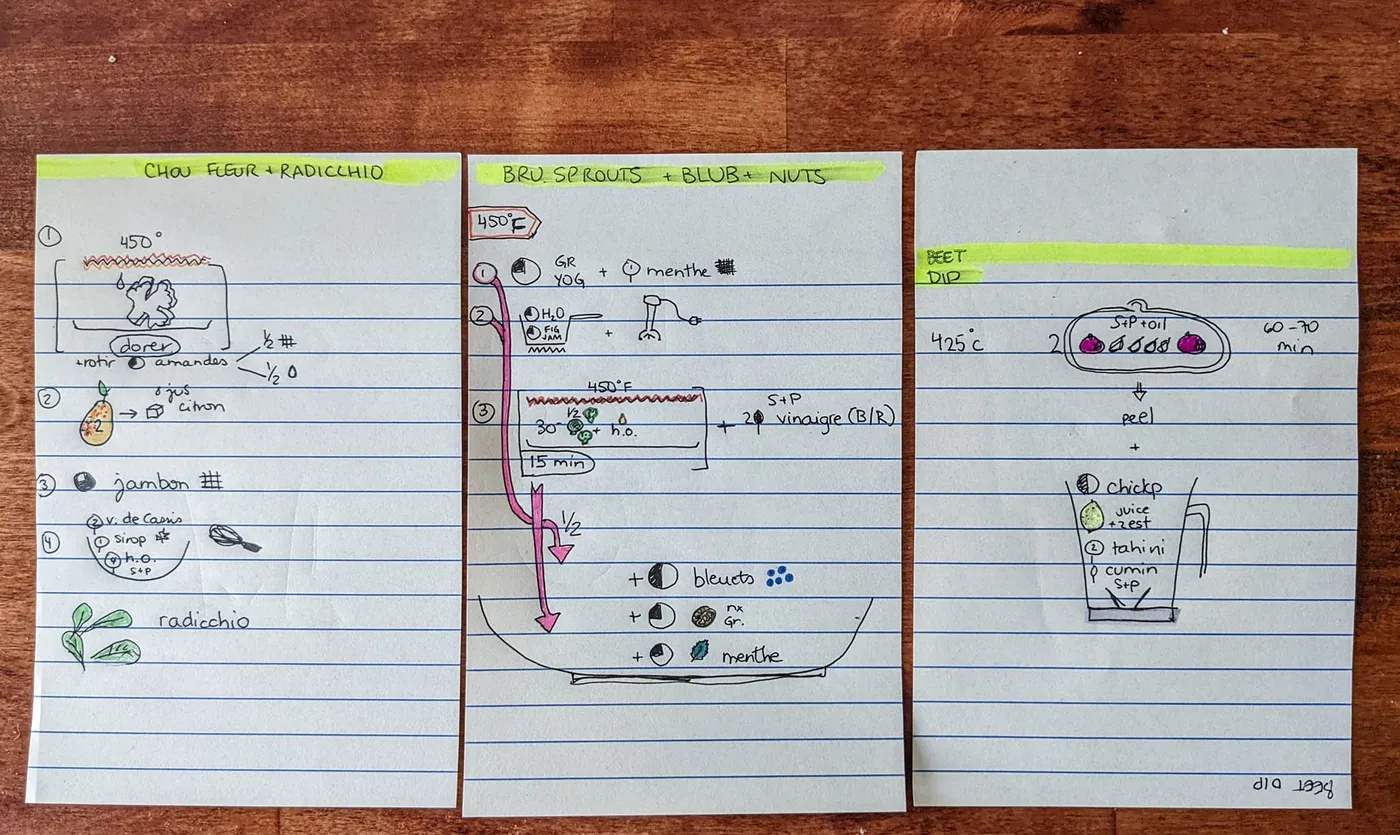 CHOU FLEUR + RADICCHIO
①
450°
dorer
+rotir amandes
½
½
②
2
jus
citron
③ jambon
② v. de Cassis
④ ① sirop
④ h.o.
S+P
radicchio
BRU. SPROUTS + BLUB + NUTS
450°F
① GR
YOG + menthe
② H₂O
FIG
JAM
+
450°F
③ 30 - ½ + h.o.
15 min
+ S+P
2 vinaigre (B/R)
½
+ bleuets
+ nx
Gr.
+ menthe
BEET
DIP
425°C 2 S+P + oil 60-70
min
peel
+
chickp
juice
+ zest
② tahini
cumin
S+P
BEET DIP